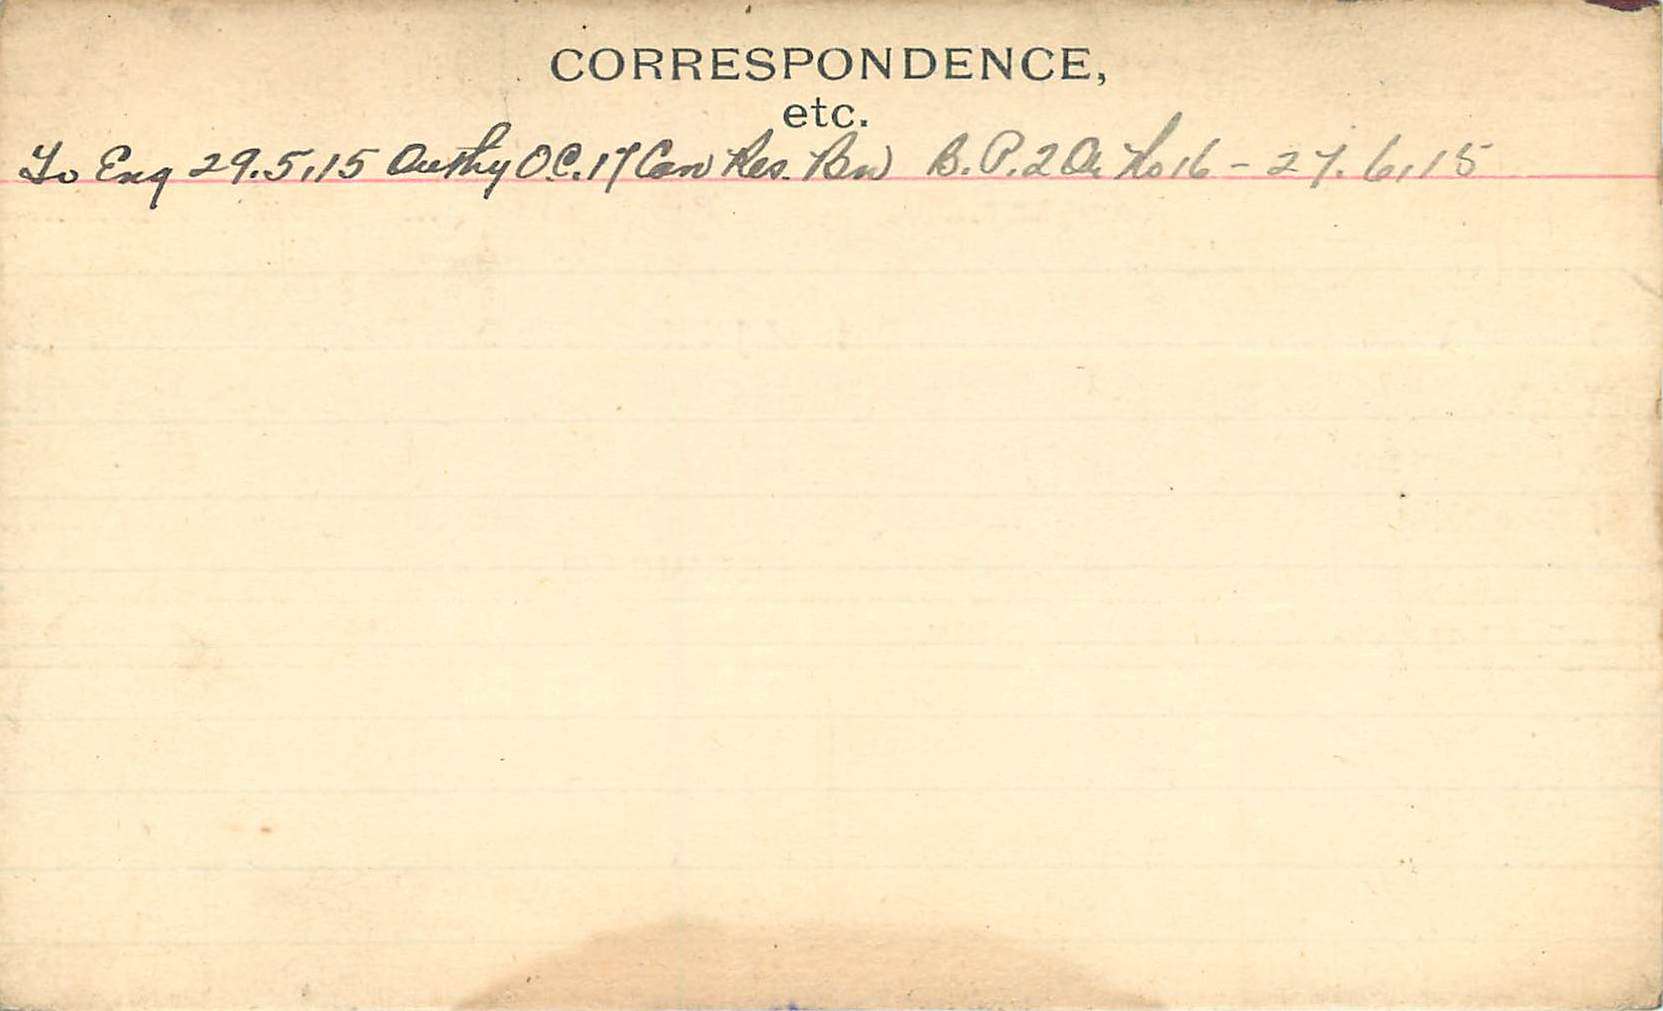 CORRESPONDENCE,
etc.
To Eng 29.5.15 Authy O.C. 17 Can Res. Bn B.P. 2 No 16 - 27.6.15